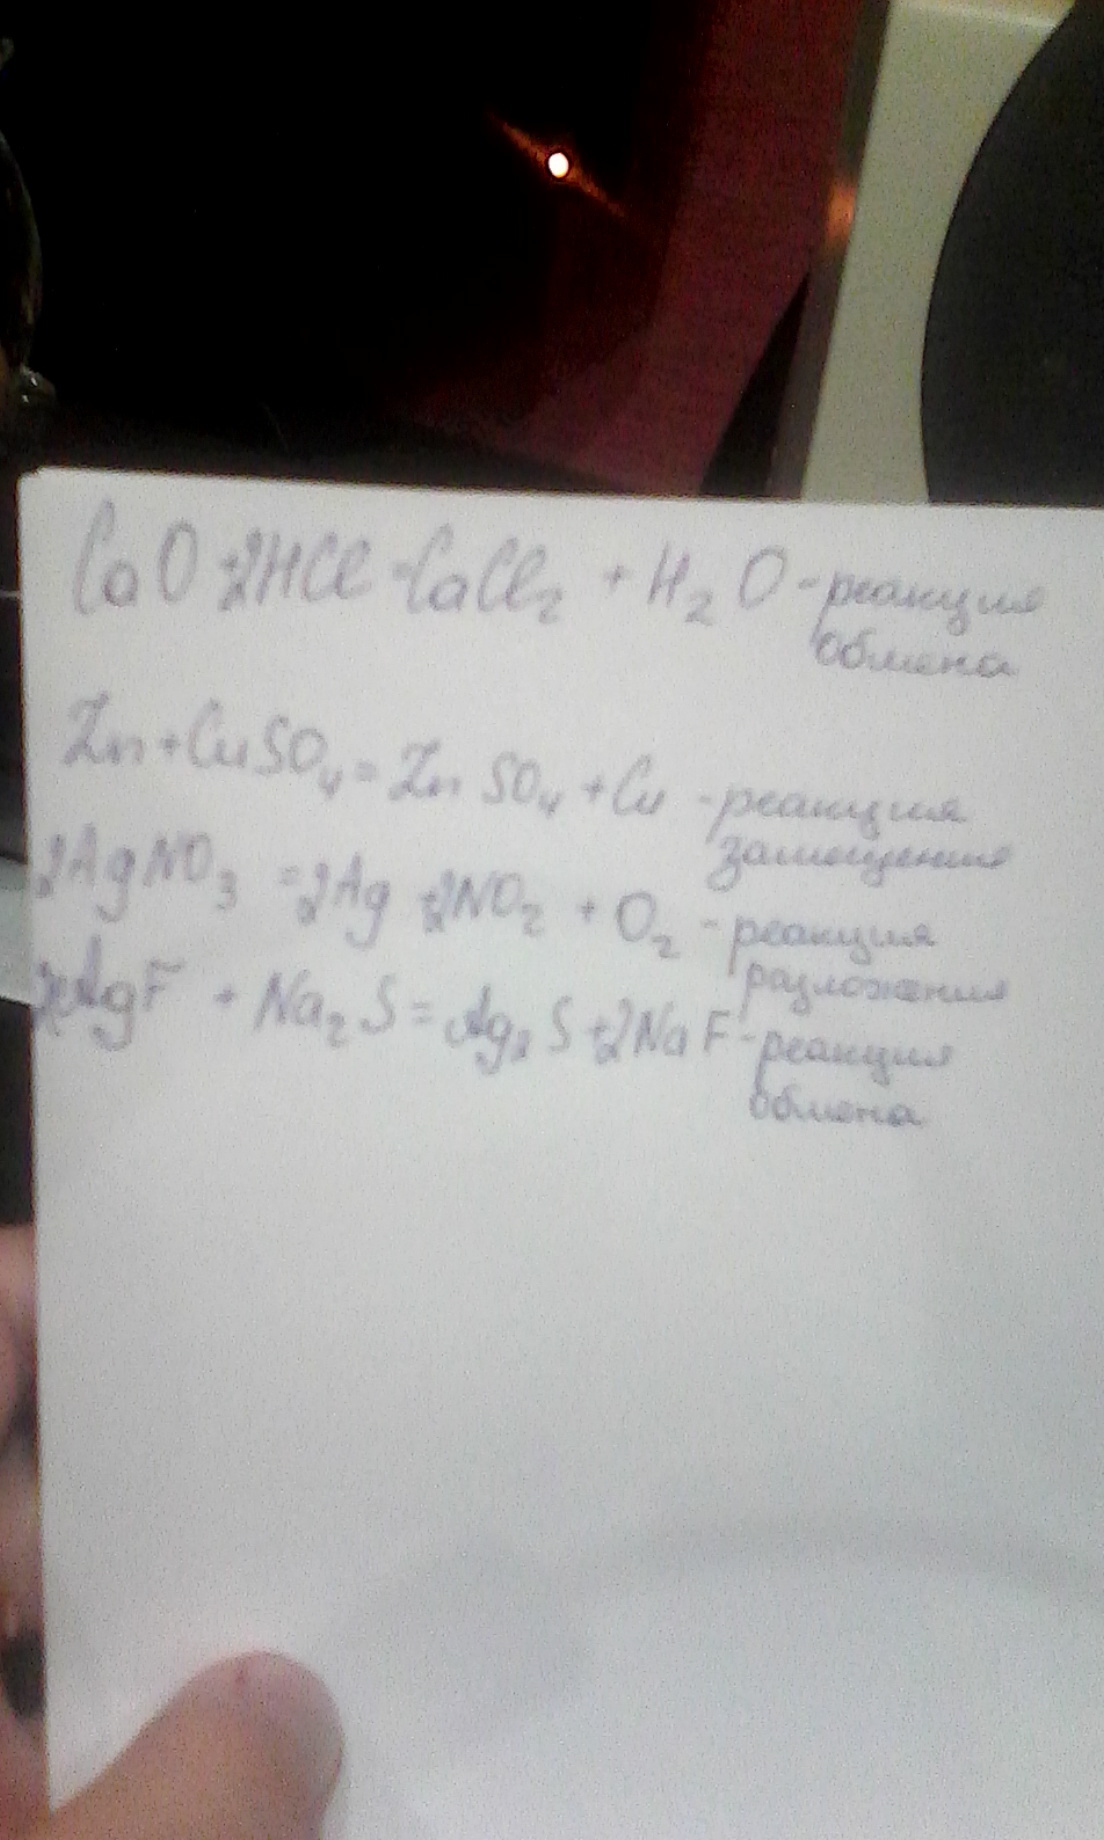 CaO+2HCl=CaCl₂ + H₂O-реакция
обмена
Zn+CuSO₄=ZnSO₄+Cu-реакция
замещения
2AgNO₃=2Ag+2NO₂+O₂-реакция
разложения
2AgF+Na₂S=Ag₂S+2NaF-реакция
обмена